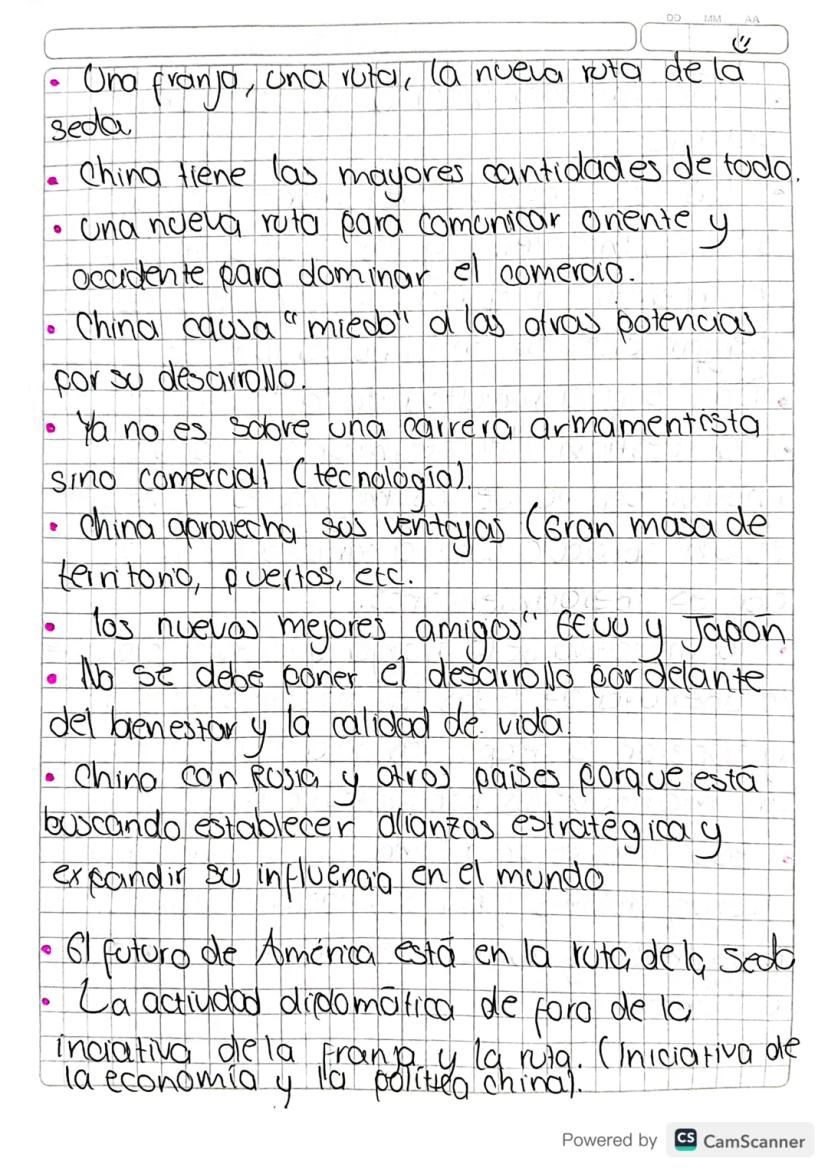 DD MM AA
• Una franja, una ruta, la nueva ruta de la
seda
• China tiene las mayores cantidades de todo.
• una nueva ruta para comunicar oriente y
occidente para dominar el comercio.
• China causa "miedo" a las otras potencias
por su desarrollo.
• Ya no es sobre una carrera armamentista
sino comercial (tecnología).
• China aprovecha sus ventajas (Gran masa de
territorio, puertos, etc.
• los nuevos mejores amigos" EEUU y Japón
• No se debe poner el desarrollo por delante
del bienestar y la calidad de vida
• China con Rusia y otros países porque está
buscando establecer alianzas estratégica y
expandir su influencia en el mundo
• El futuro de América está en la ruta de la seda
• La actividad diplomática de foro de la
inciativa de la Franja y la ruta. (Iniciativa de
la economía y la política china).
Powered by CS CamScanner